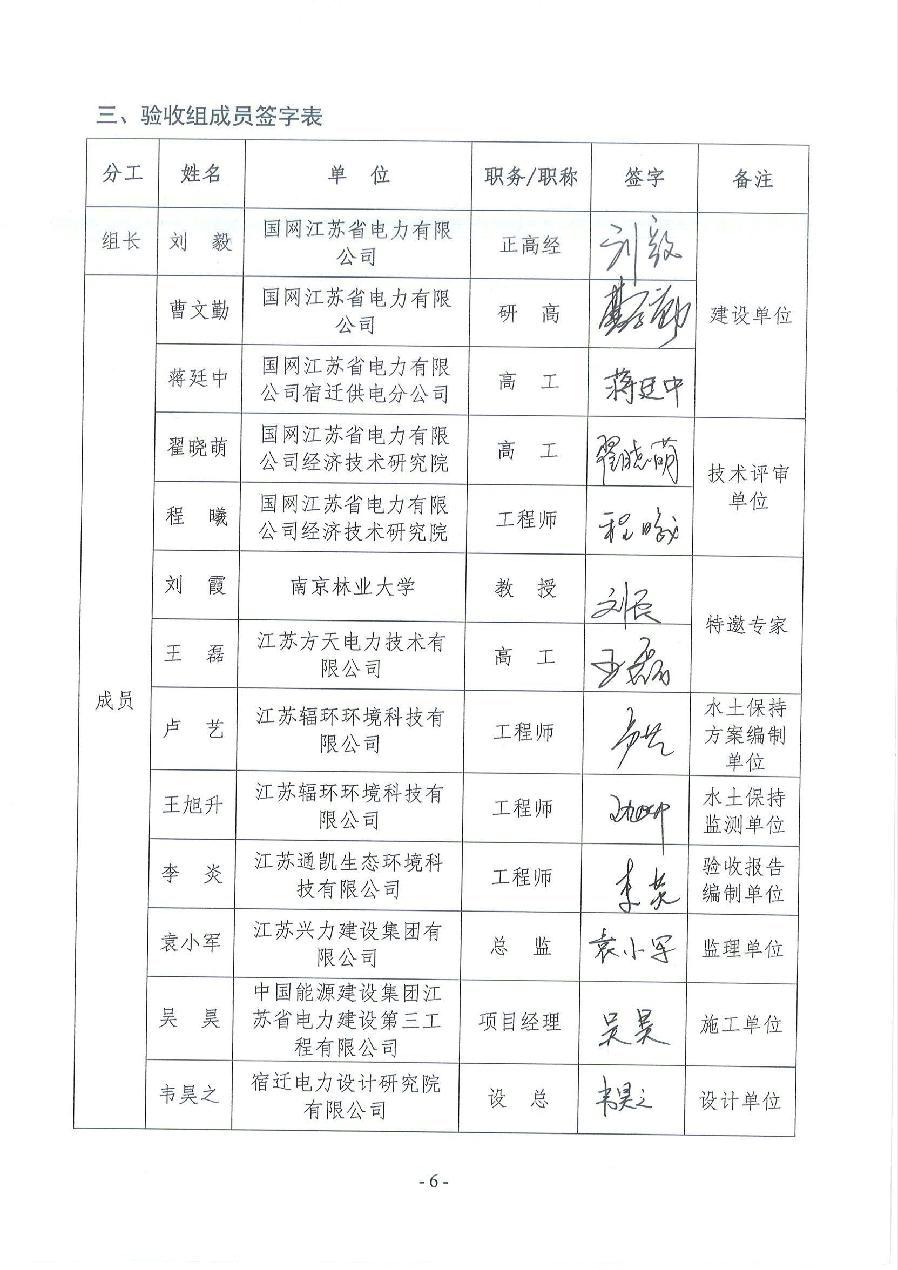 三、验收组成员签字表
分工 姓名 单 位 职务/职称 签字 备注
组长 刘 毅 国网江苏省电力有限
公司 正高经 刘毅
建设单位
成员
曹文勤 国网江苏省电力有限
公司 研 高 曹文勤
蒋廷中 国网江苏省电力有限
公司宿迁供电分公司 高 工 蒋廷中
翟晓萌 国网江苏省电力有限
公司经济技术研究院 高 工 翟晓萌
技术评审
单位
程 曦 国网江苏省电力有限
公司经济技术研究院 工程师 程曦
刘 霞 南京林业大学 教 授 刘霞
特邀专家
王 磊 江苏方天电力技术有
限公司 高 工 王磊
卢 艺 江苏辐环环境科技有
限公司 工程师 卢艺
水土保持
方案编制
单位
王旭升 江苏辐环环境科技有
限公司 工程师 王旭升
水土保持
监测单位
李 炎 江苏通凯生态环境科
技有限公司 工程师 李炎
验收报告
编制单位
袁小军 江苏兴力建设集团有
限公司 总 监 袁小军 监理单位
吴 昊 中国能源建设集团江
苏省电力建设第三工
程有限公司 项目经理 吴昊 施工单位
韦昊之 宿迁电力设计研究院
有限公司 设 总 韦昊之 设计单位
- 6 -